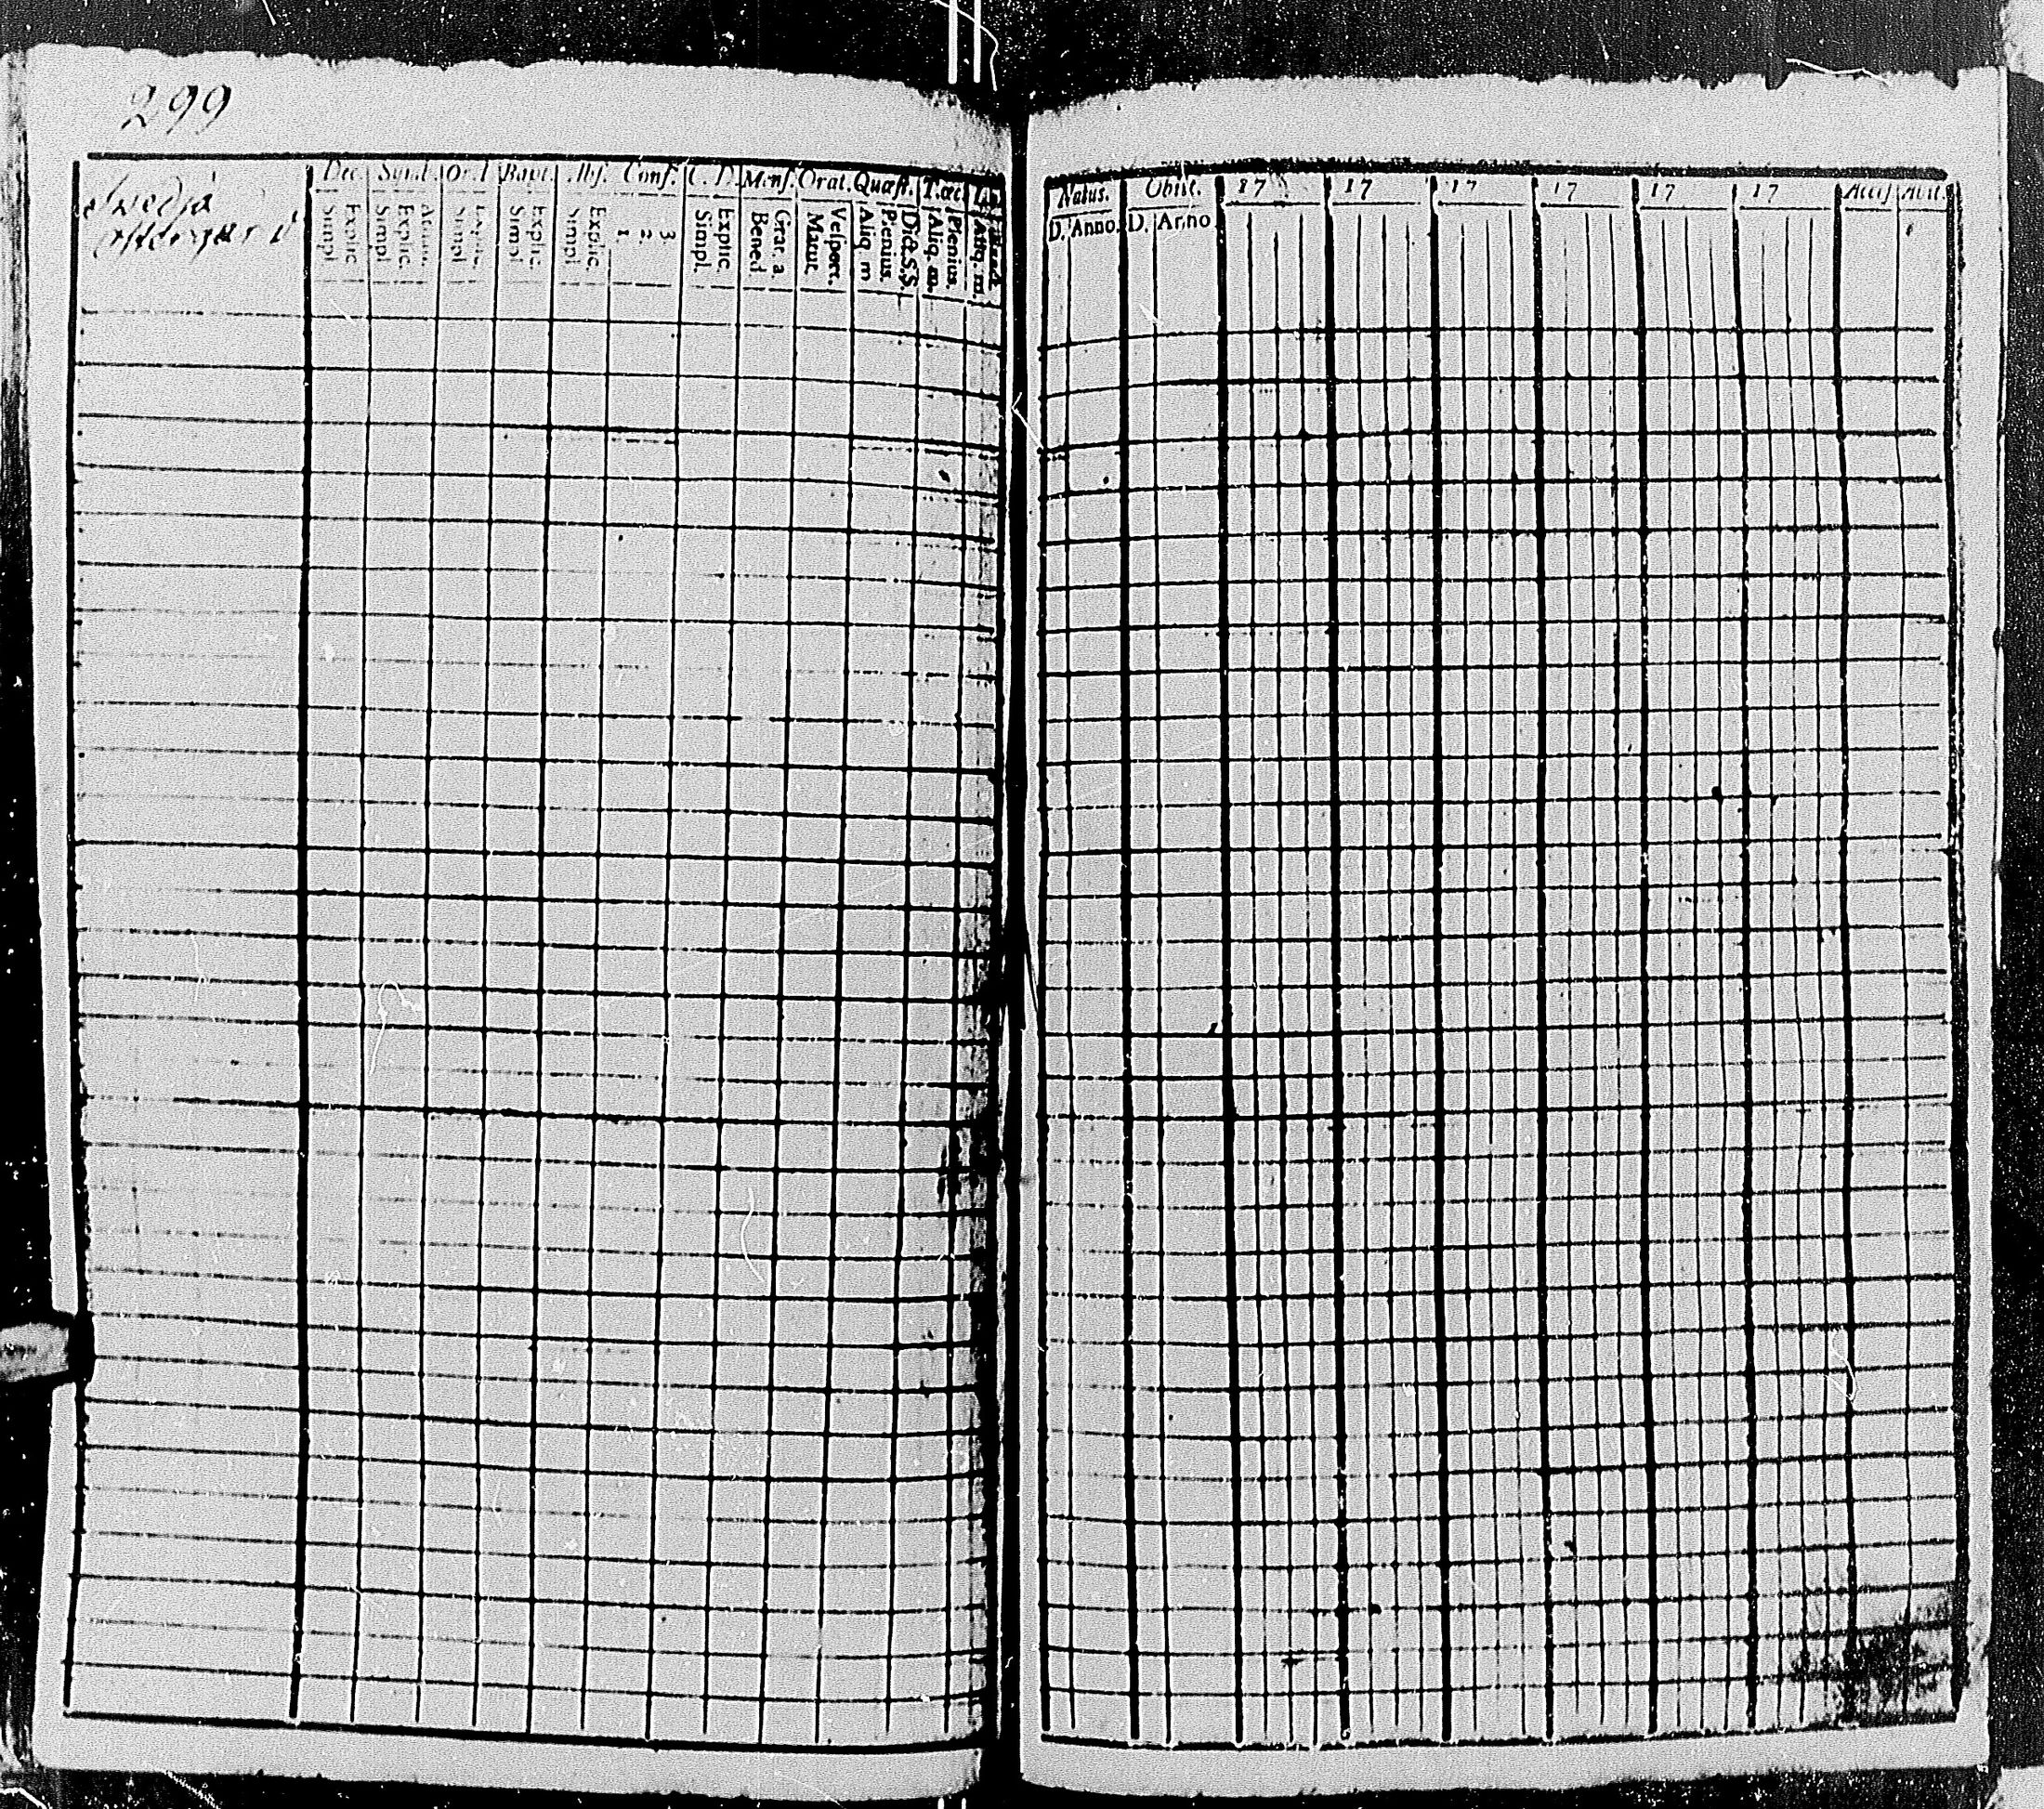 299
Swedja
Dec. Symb. Or. d. Bapt. Abs. Conf. C. D. Mens. Orat. Quæst. T. œc.
Explic. Simpl. Explic. Simpl. Simpl. Explic. Simpl. Explic. Simpl. 3. 2. 1. Explic. Simpl. Grat. a. Bened. Vespert. Matut. Dict. S. S. Plenius. Aliq. m. Plenius. Aliq. m. Aliq. m.
Natus. Obiit. 17 17 17 17 17 17 Access. Abit.
D. Anno. D. Anno